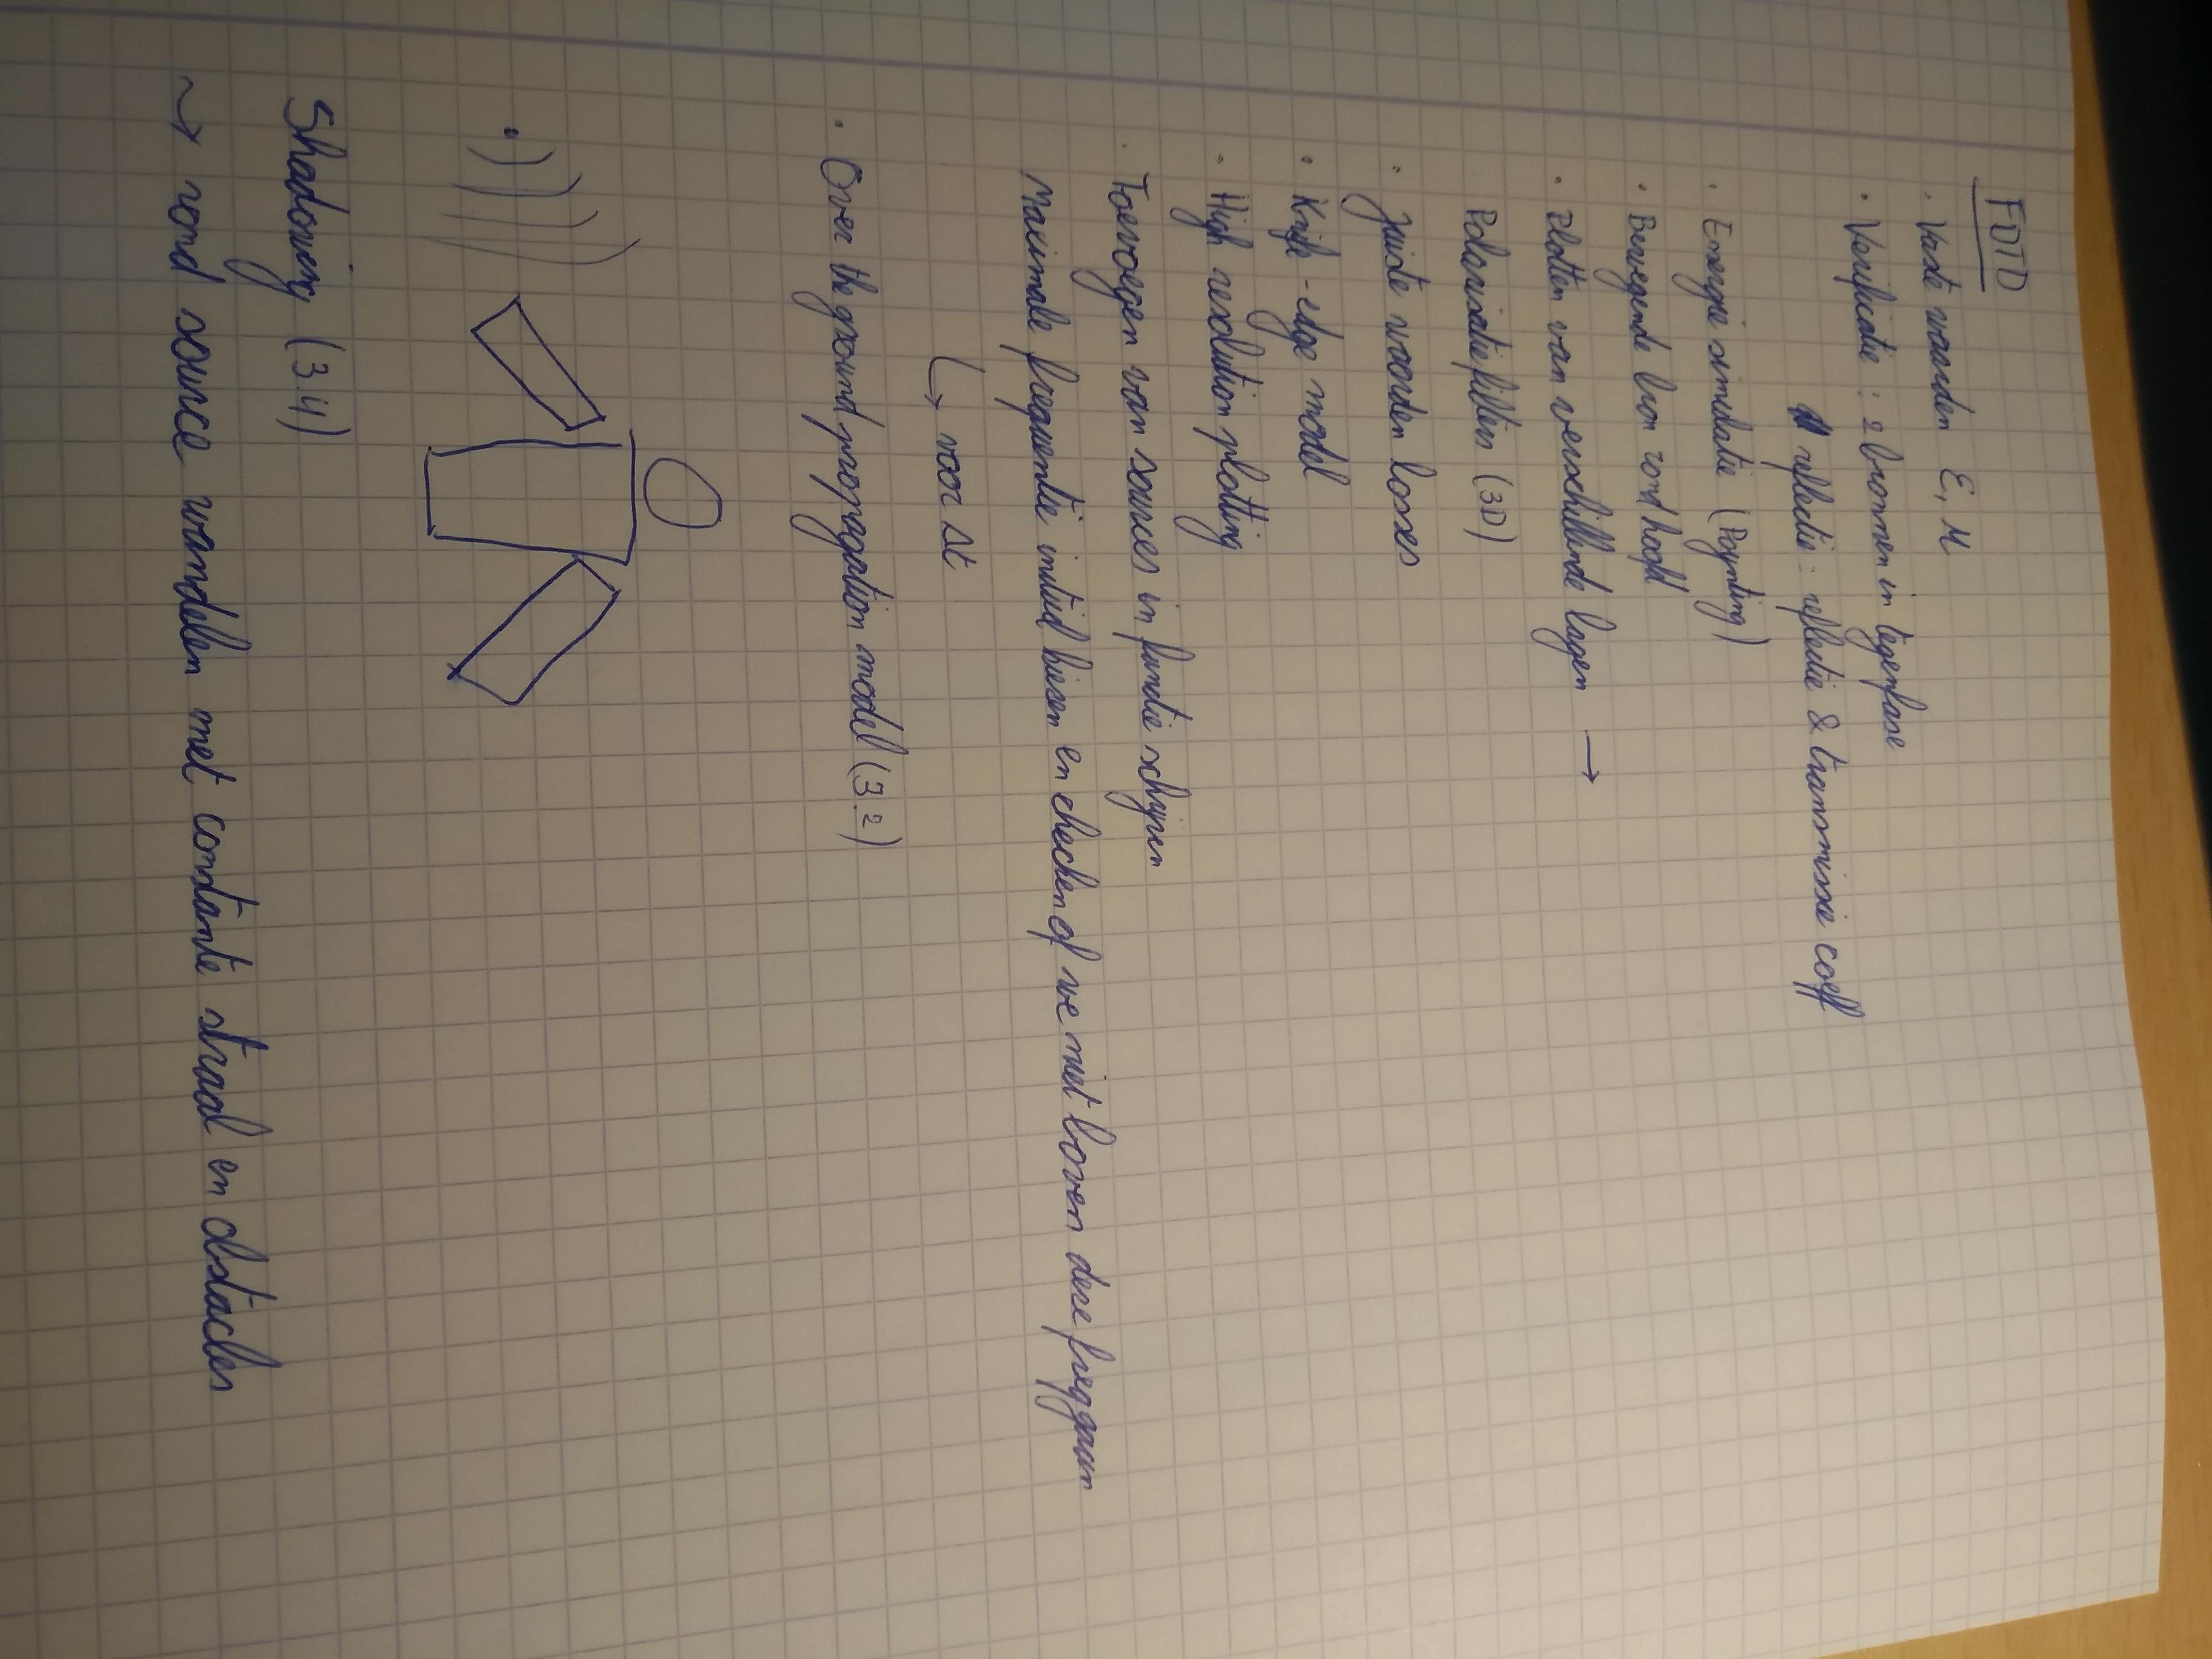 FDTD
· Vaste waarden ε, μ
· Verificatie : 2 bronnen in tegenfase
reflectie : reflectie & transmissie coeff
· Energie simulatie (Poynting)
· Bewegende bron rond hoofd
· Plotten van verschillende lagen →
Polarisatiefilters (3D)
· Juiste waarden losses
· Knife-edge model
· High resolution plotting
· Toevoegen van sources in functie schrijven
Maximale frequentie initieel kiezen en checken of we niet boven deze freq gaan
↳ voor Δt
· Over the ground propagation model (3.2)
Shadowing (3.4)
→ rond source wandelen met constante straal en obstacles